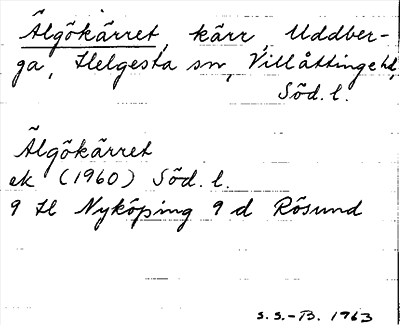 Älgökärret, kärr, Uddber-
ga, Helgesta sn, Villåttinge hd,
Söd. l.
Älgökärret
ek (1960) Söd. l.
9 H Nyköping 9 d Rösund
S.S.-B. 1963